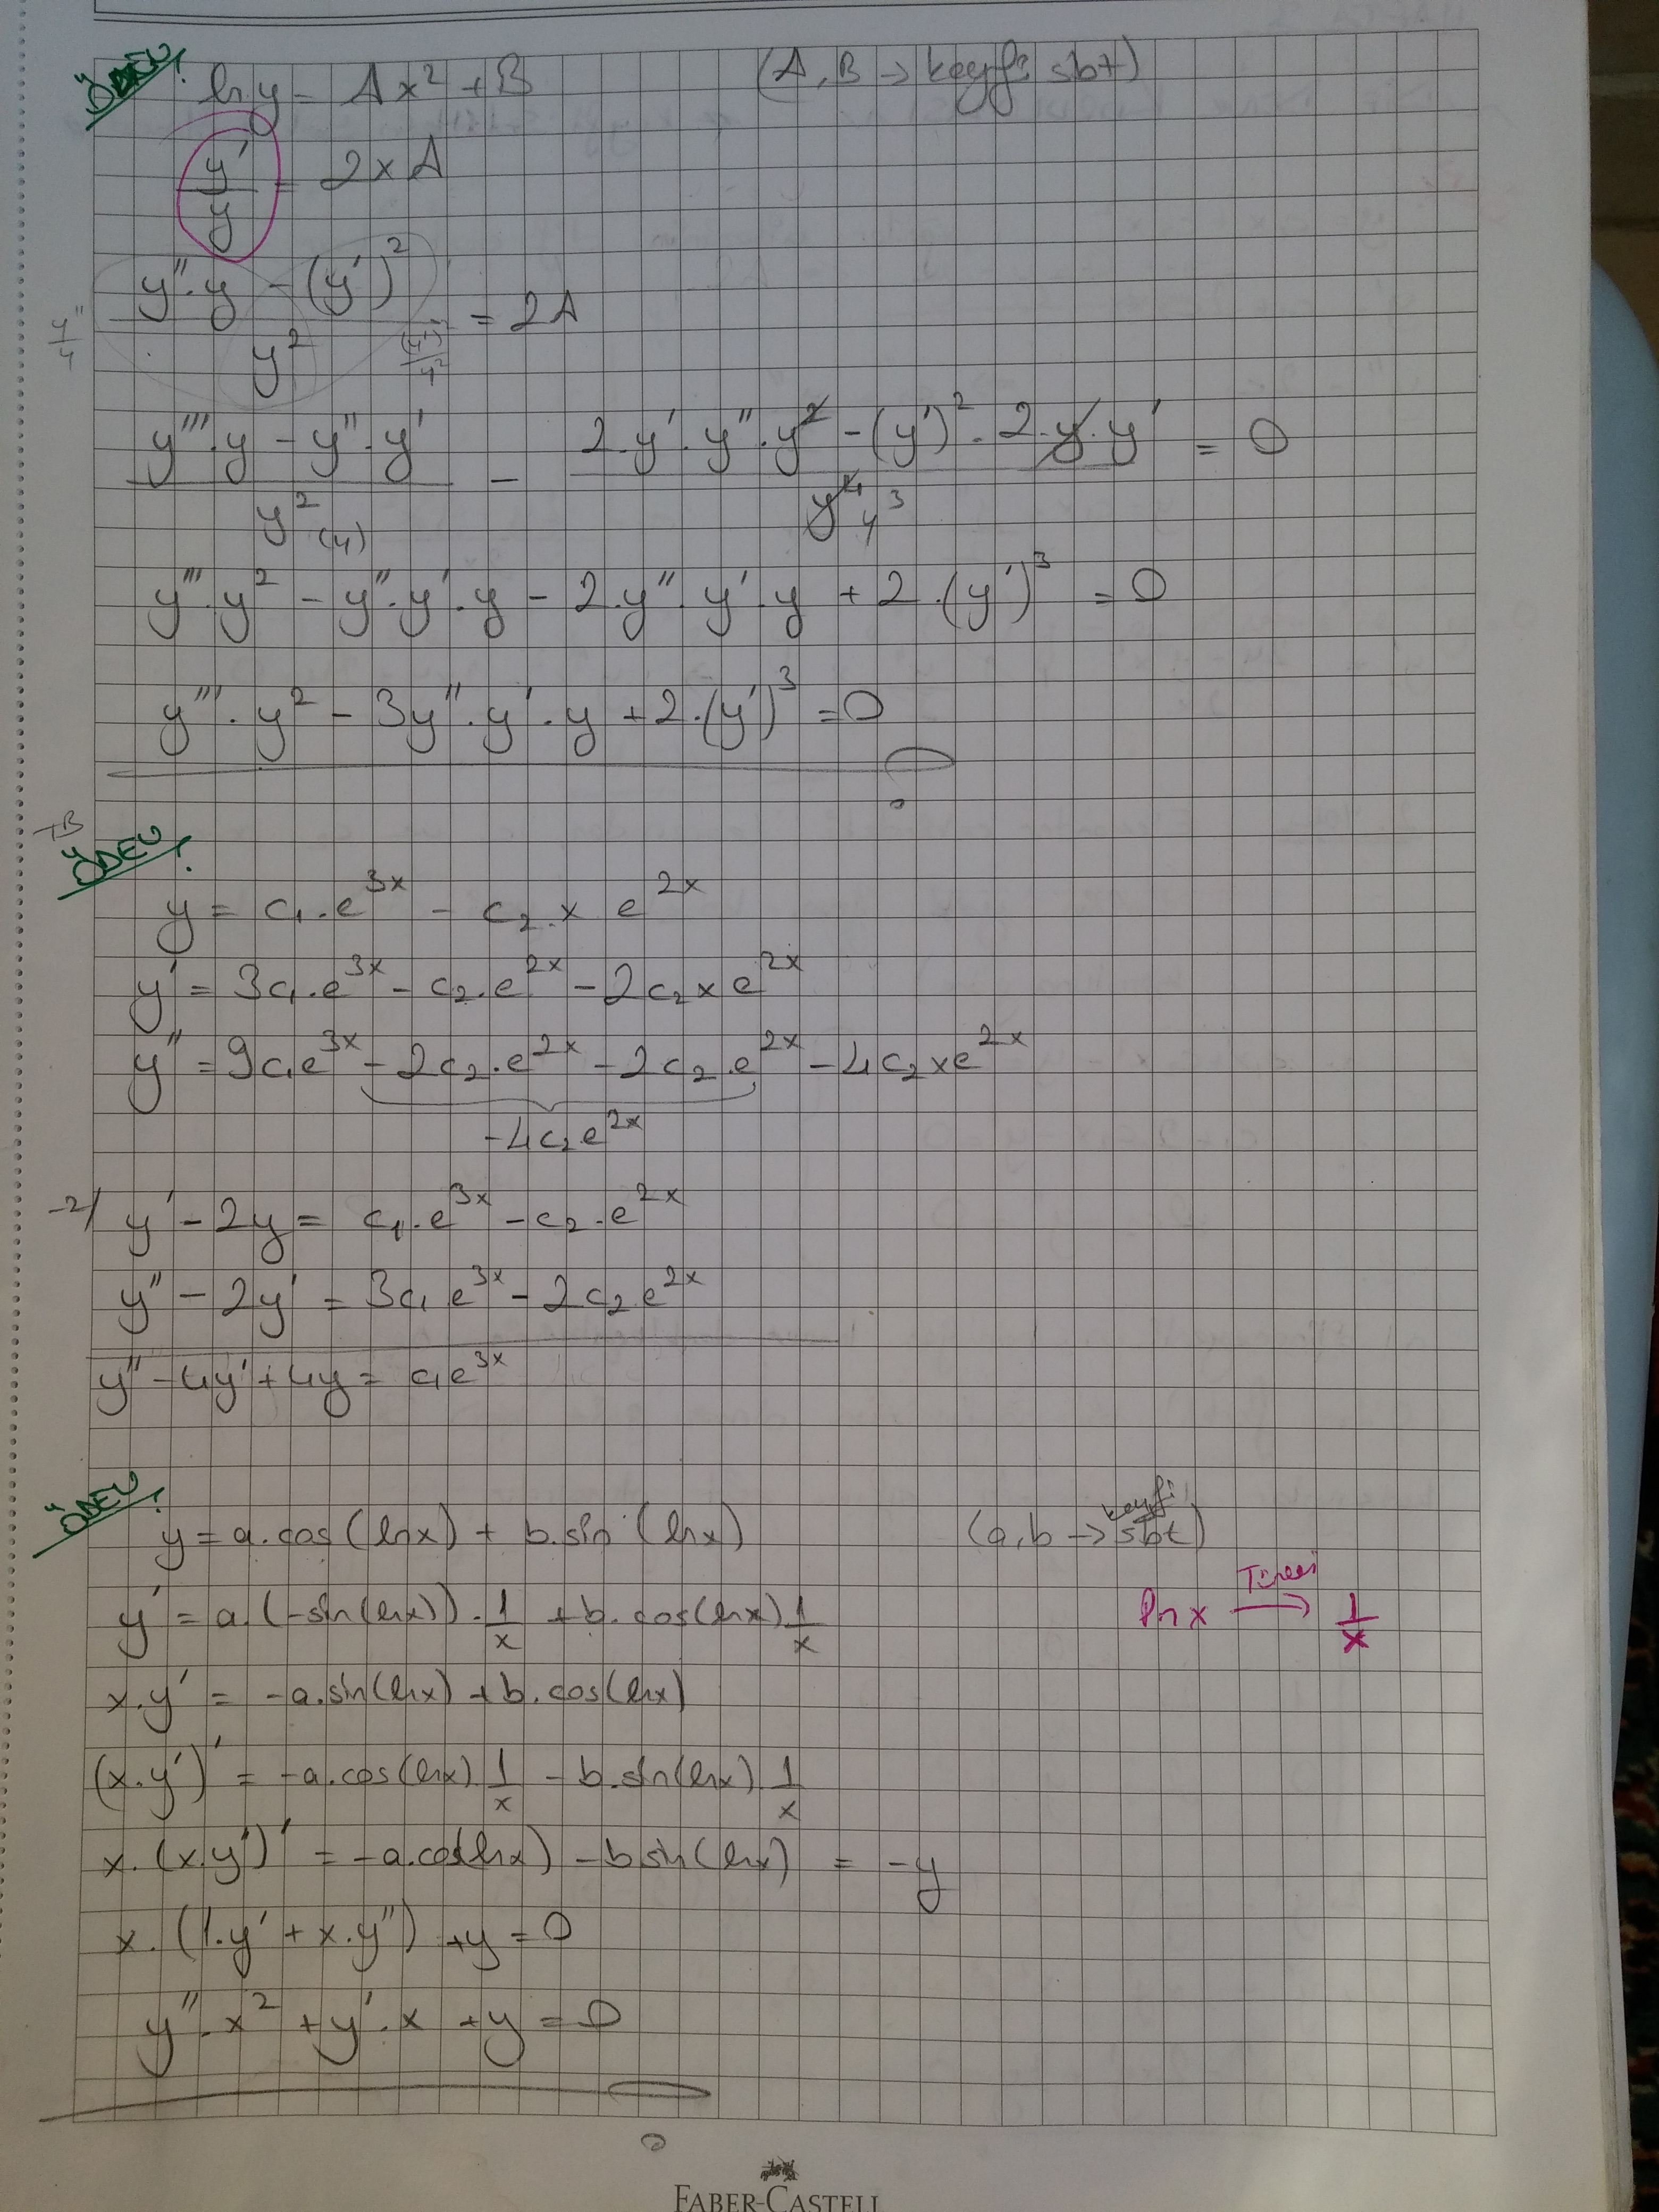 ÖDEV!
ln y = Ax² + B (A, B → keyfi sbt)
y'/y = 2xA
(y''.y - (y')²)/y² = 2A
y''/y (y')²/y²
(y'''.y - y''.y')/y² - (2.y'.y''.y² - (y')².2.y.y')/y⁴ = 0
(y) y³
y'''.y² - y''.y'.y - 2.y''.y'.y + 2.(y')³ = 0
y'''.y² - 3y''.y'.y + 2.(y')³ = 0
ÖDEV!
y = c₁.e^3x - c₂.x e^2x
y' = 3c₁.e^3x - c₂.e^2x - 2c₂xe^2x
y'' = 9c₁e^3x - 2c₂.e^2x - 2c₂.e^2x - 4c₂xe^2x
-4c₂e^2x
-2/ y' - 2y = c₁.e^3x - c₂.e^2x
y'' - 2y' = 3c₁e^3x - 2c₂e^2x
y'' - 4y' + 4y = c₁e^3x
ÖDEV!
y = a.cos(lnx) + b.sin(lnx) (a,b → keyfi sbt)
y' = a.(-sin(lnx)).1/x + b.cos(lnx).1/x
ln x →Türevi 1/x
x.y' = -a.sin(lnx) + b.cos(lnx)
(x.y')' = -a.cos(lnx).1/x - b.sin(lnx).1/x
x.(x.y')' = -a.cos(lnx) - b sin(lnx) = -y
x.(1.y' + x.y'') + y = 0
y''.x² + y'.x + y = 0
FABER-CASTELL